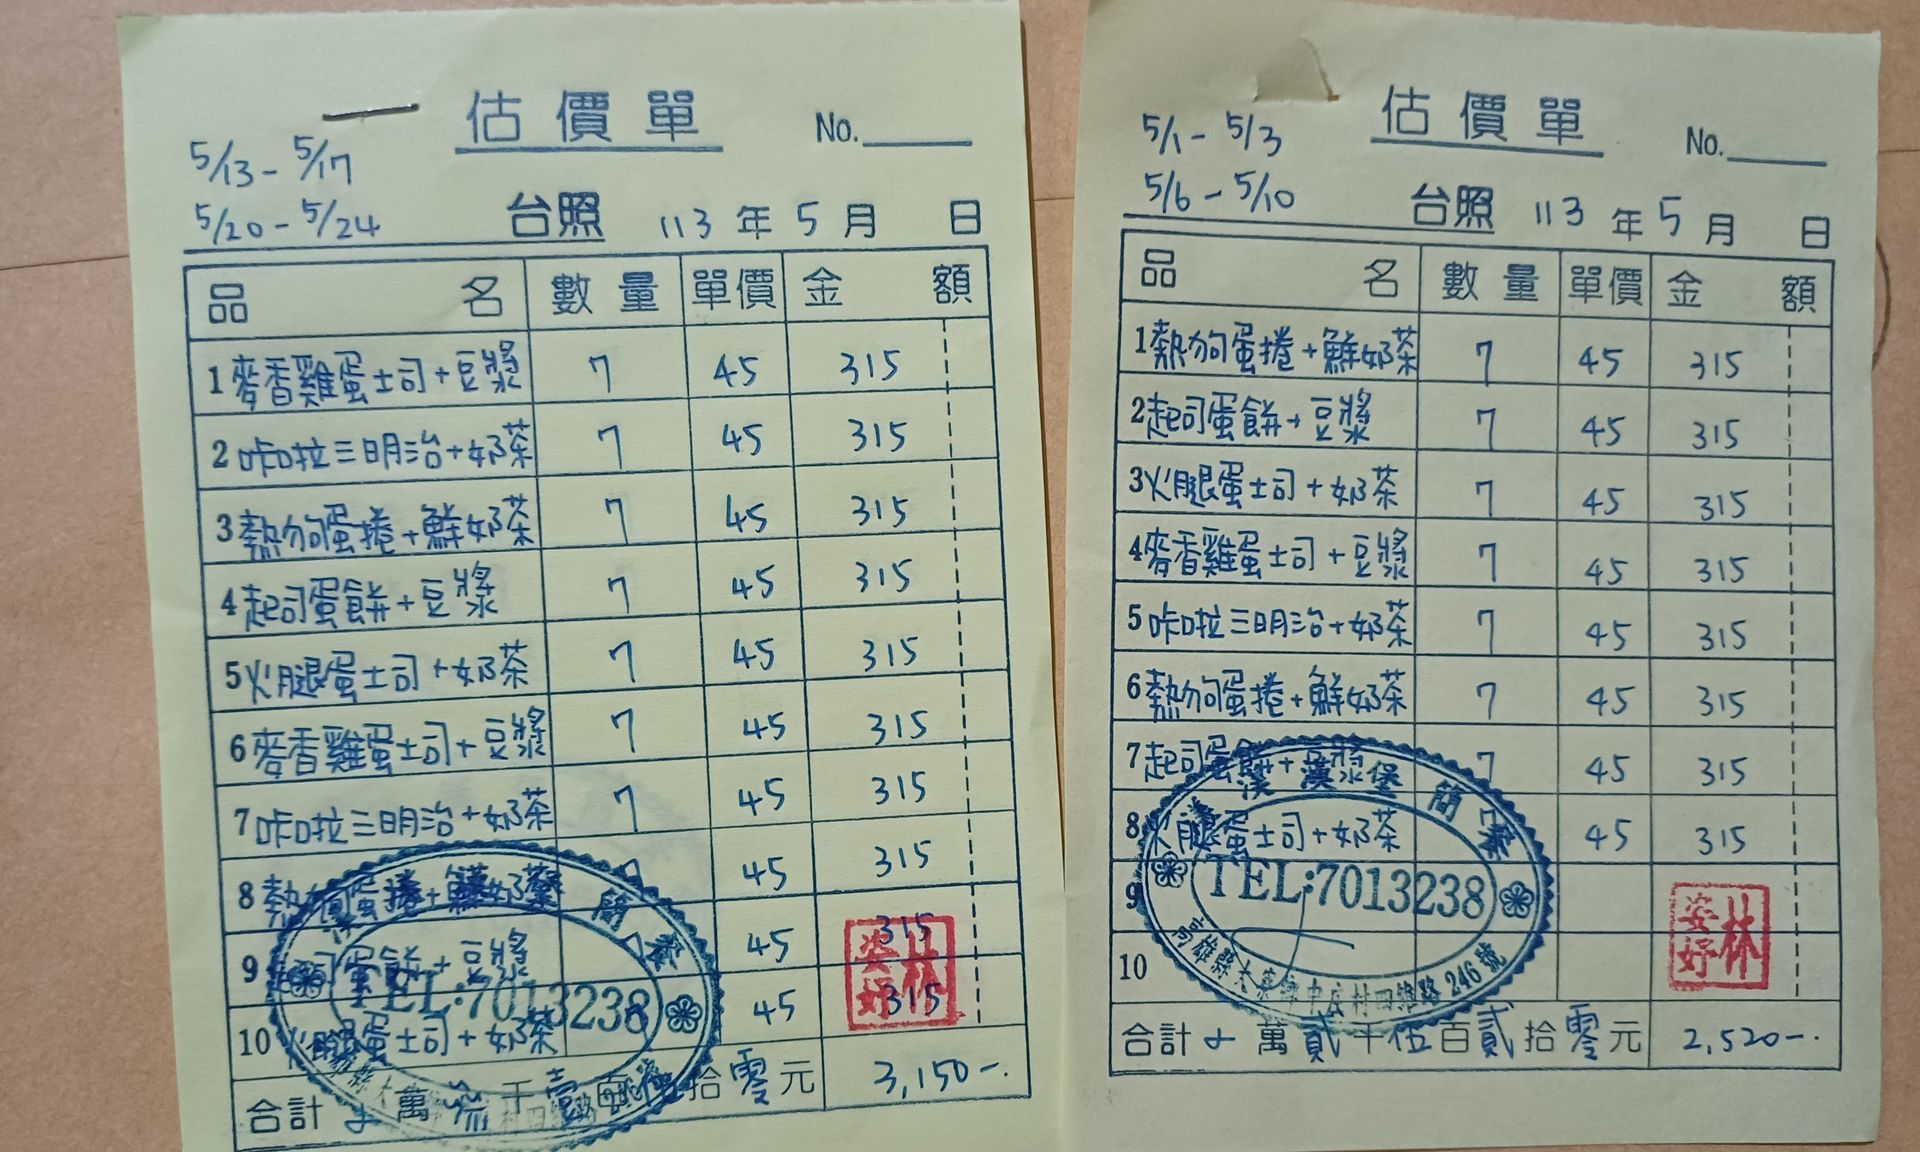 5/13-5/17
5/20-5/24
估價單
No.
台照 113年5月 日
品名 數量 單價 金額
1 麥香雞蛋土司+豆漿 7 45 315
2 咔啦三明治+奶茶 7 45 315
3 熱狗蛋捲+鮮奶茶 7 45 315
4 起司蛋餅+豆漿 7 45 315
5 火腿蛋土司+奶茶 7 45 315
6 麥香雞蛋土司+豆漿 7 45 315
7 咔啦三明治+奶茶 7 45 315
8 熱狗蛋捲+鮮奶茶 7 45 315
9 起司蛋餅+豆漿 7 45 315
10 火腿蛋土司+奶茶 45 315
TEL:7013238
林姿妤
合計 萬 千壹百伍拾零元 3,150-.
5/1-5/3
5/6-5/10
估價單
No.
台照 113年5月 日
品名 數量 單價 金額
1 熱狗蛋捲+鮮奶茶 7 45 315
2 起司蛋餅+豆漿 7 45 315
3 火腿蛋土司+奶茶 7 45 315
4 麥香雞蛋土司+豆漿 7 45 315
5 咔啦三明治+奶茶 7 45 315
6 熱狗蛋捲+鮮奶茶 7 45 315
7 起司蛋餅+豆漿 7 45 315
8 火腿蛋土司+奶茶 45 315
9
10
漢堡簡餐
TEL:7013238
高雄縣大寮鄉中庄村四維路246號
林姿妤
合計 萬貳千伍百貳拾零元 2,520-.